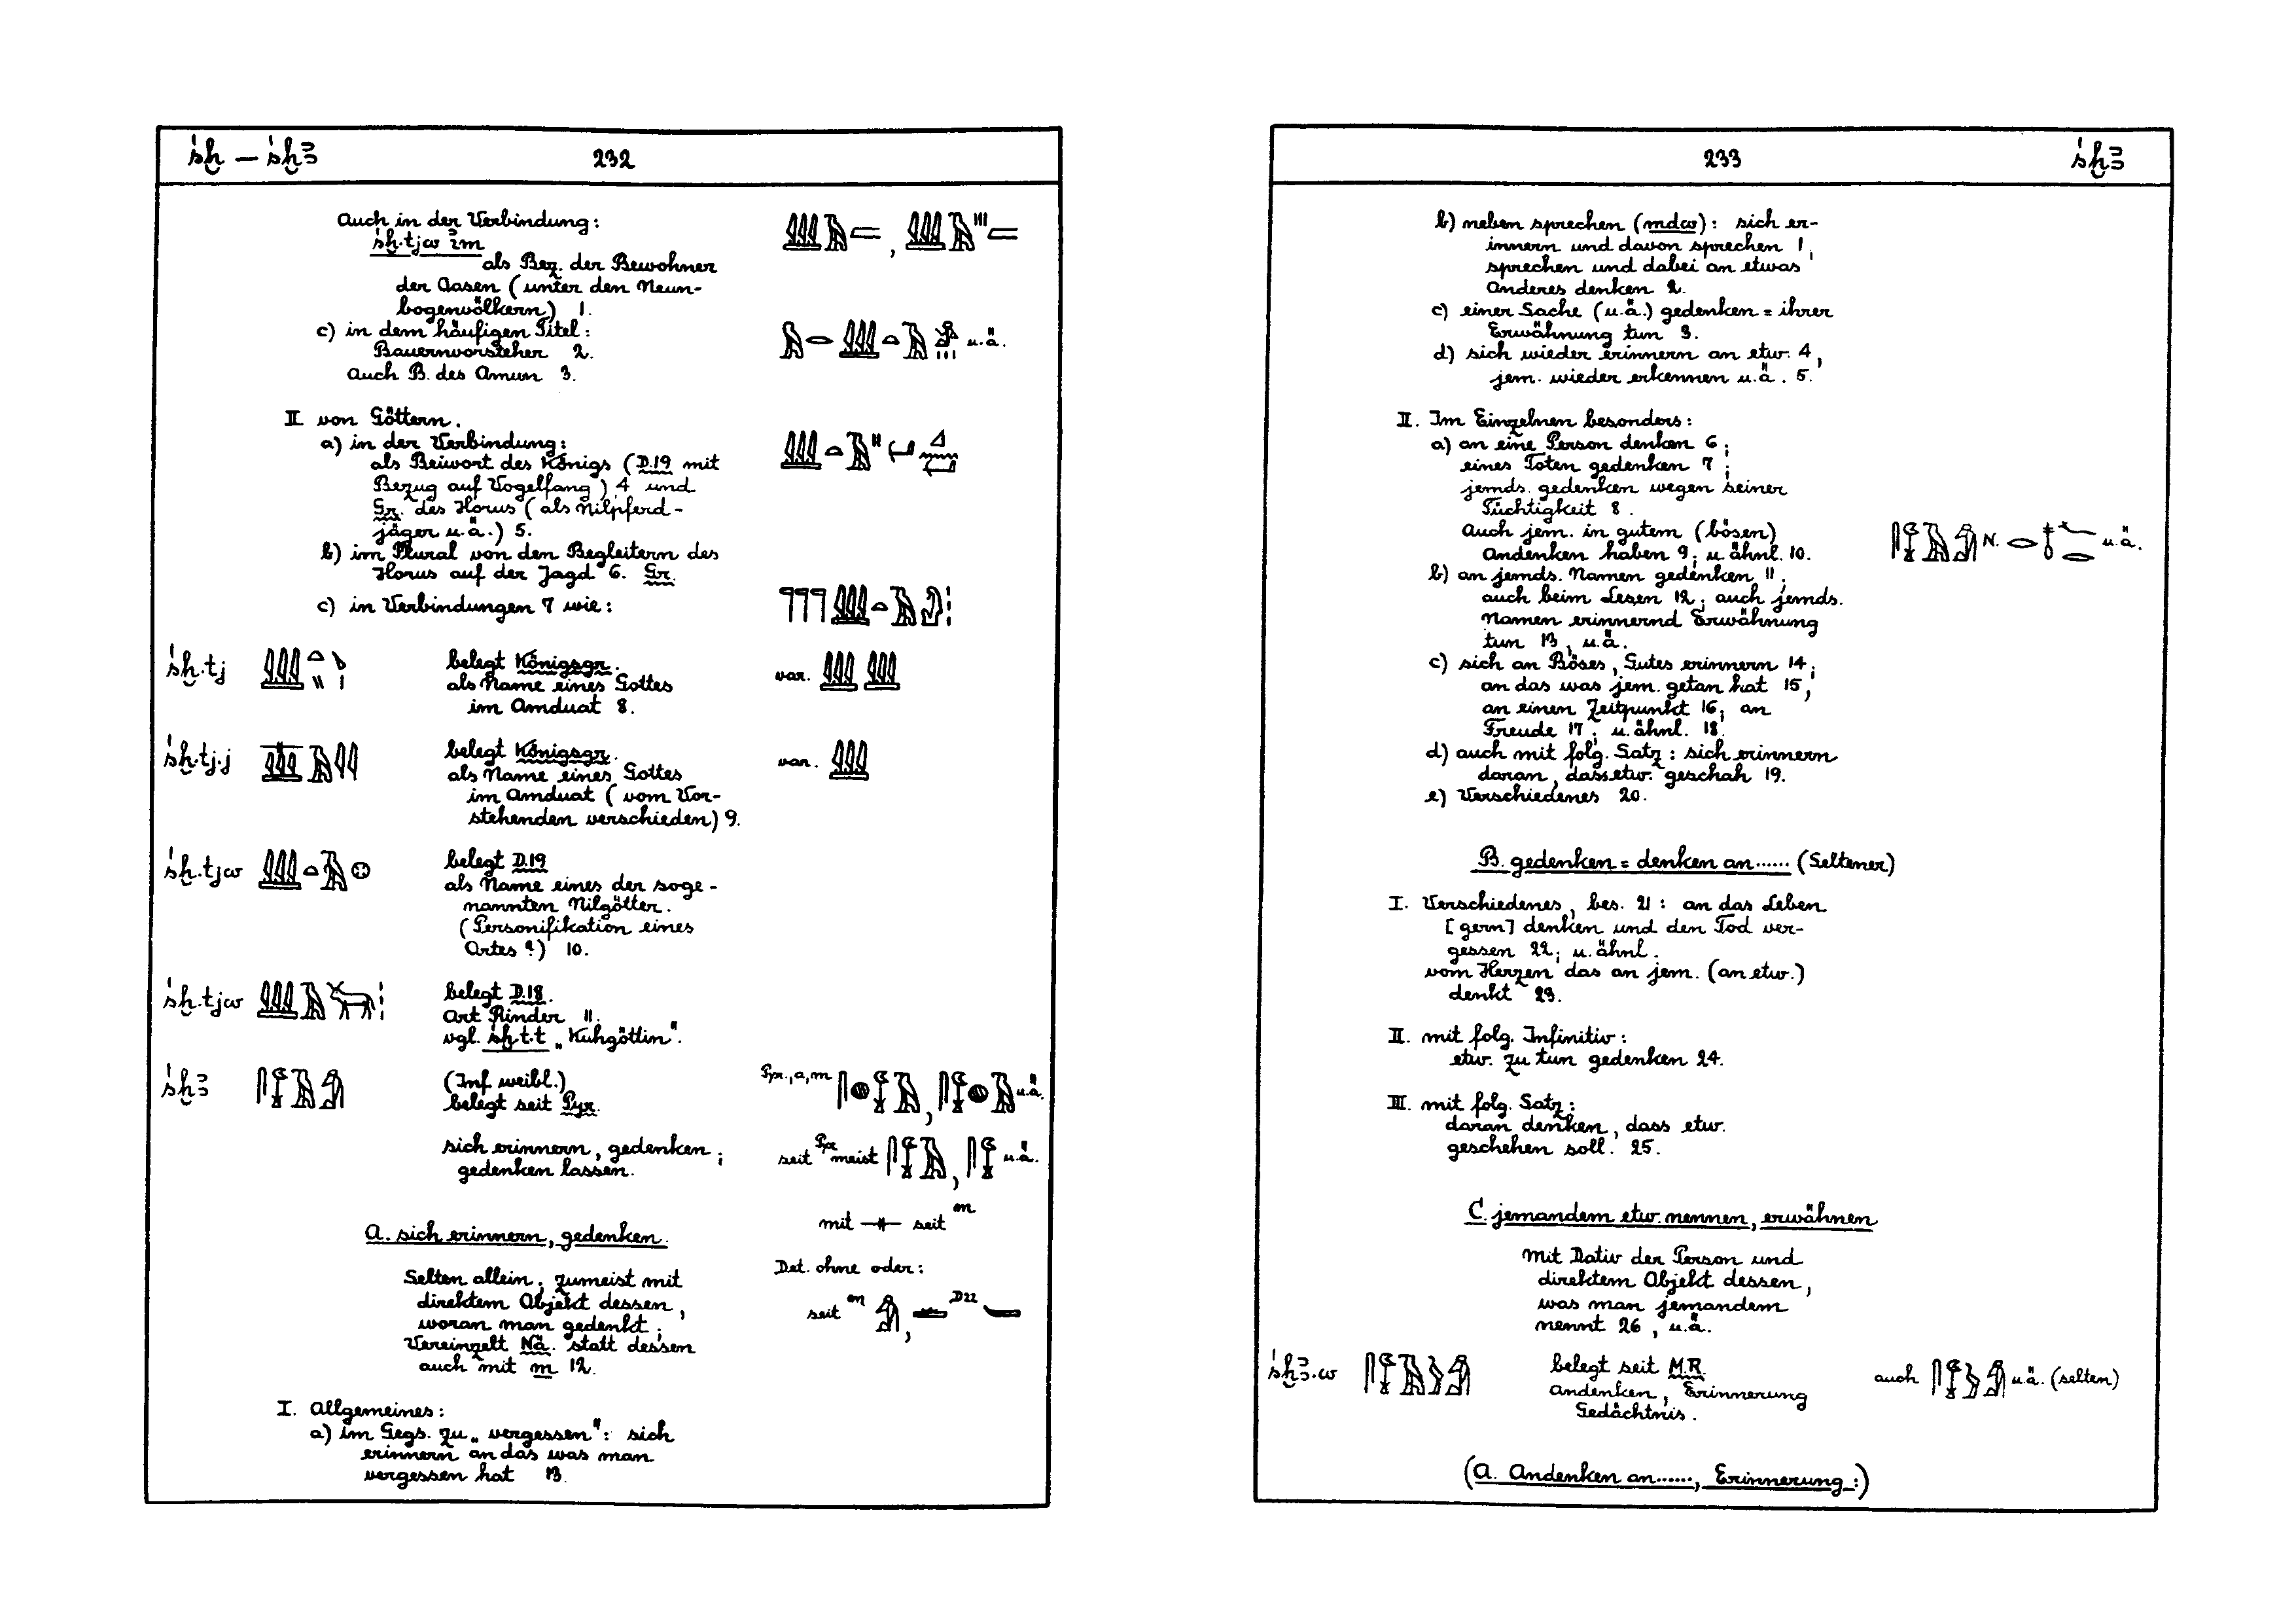 śḫ — śḫꜣ 232
Auch in der Verbindung:
śḫ.tjw ꞽm
als Bez. der Bewohner
der Oasen (unter den Neun-
bogenvölkern) 1.
c) in dem häufigen Titel: u.ä.
Bauernvorsteher 2.
Auch B. des Amun 3.
II von Göttern.
a) in der Verbindung:
als Beiwort des Königs (D.19 mit
Bezug auf Vogelfang) 4 und
Gr. des Horus (als Nilpferd-
jäger u.ä.) 5.
b) im Plural von den Begleitern des
Horus auf der Jagd 6. Gr.
c) in Verbindungen 7 wie:
śḫ.tj belegt Königsgr. var.
als Name eines Gottes
im Amduat 8.
śḫ.tj.j belegt Königsgr. var.
als Name eines Gottes
im Amduat (vom Vor-
stehenden verschieden) 9.
śḫ.tjw belegt D.19
als Name eines der soge-
nannten Nilgötter.
(Personifikation eines
Ortes?) 10.
śḫ.tjw belegt D.18.
Art Rinder 11.
vgl. śḫ.t.t „Kuhgöttin".
śḫꜣ (Inf. weibl.) Pyr., a, m , u.ä.
belegt seit Pyr.
sich erinnern, gedenken; seit Pyr meist , u.ä.
gedenken lassen.
mit seit m
A. sich erinnern, gedenken.
Det. ohne oder:
Selten allein; zumeist mit
direktem Objekt dessen, seit m , D22
woran man gedenkt;
Vereinzelt Nä. statt dessen
auch mit m 12.
I. Allgemeines:
a) im Gegs. zu „vergessen": sich
erinnern an das was man
vergessen hat 13.
233 śḫꜣ
b) neben sprechen (mdw): sich er-
innern und davon sprechen 1;
sprechen und dabei an etwas
Anderes denken 2.
c) einer Sache (u.ä.) gedenken = ihrer
Erwähnung tun 3.
d) sich wieder erinnern an etw. 4,
jem. wieder erkennen u.ä. 5.
II. Im Einzelnen besonders:
a) an eine Person denken 6;
eines Toten gedenken 7;
jemds. gedenken wegen seiner
Tüchtigkeit 8.
Auch jem. in gutem (bösen) N. u.ä.
Andenken haben 9; u. ähnl. 10.
b) an jemds. Namen gedenken 11;
auch beim Lesen 12; auch jemds.
Namen erinnernd Erwähnung
tun 13, u.ä.
c) sich an Böses, Gutes erinnern 14;
an das was jem. getan hat 15;
an einen Zeitpunkt 16; an
Freude 17; u. ähnl. 18.
d) auch mit folg. Satz: sich erinnern
daran, dass etw. geschah 19.
e) Verschiedenes 20.
B. gedenken = denken an...... (Seltener)
I. Verschiedenes, bes. 21: an das Leben
[gern] denken und den Tod ver-
gessen 22; u. ähnl.
vom Herzen das an jem. (an etw.)
denkt 23.
II. mit folg. Infinitiv:
etw. zu tun gedenken 24.
III. mit folg. Satz:
daran denken, dass etw.
geschehen soll. 25.
C. jemandem etw. nennen, erwähnen
Mit Dativ der Person und
direktem Objekt dessen,
was man jemandem
nennt 26, u.ä.
śḫꜣ.w belegt seit M.R. auch u.ä. (selten)
Andenken, Erinnerung
Gedächtnis.
(A. Andenken an......, Erinnerung:)